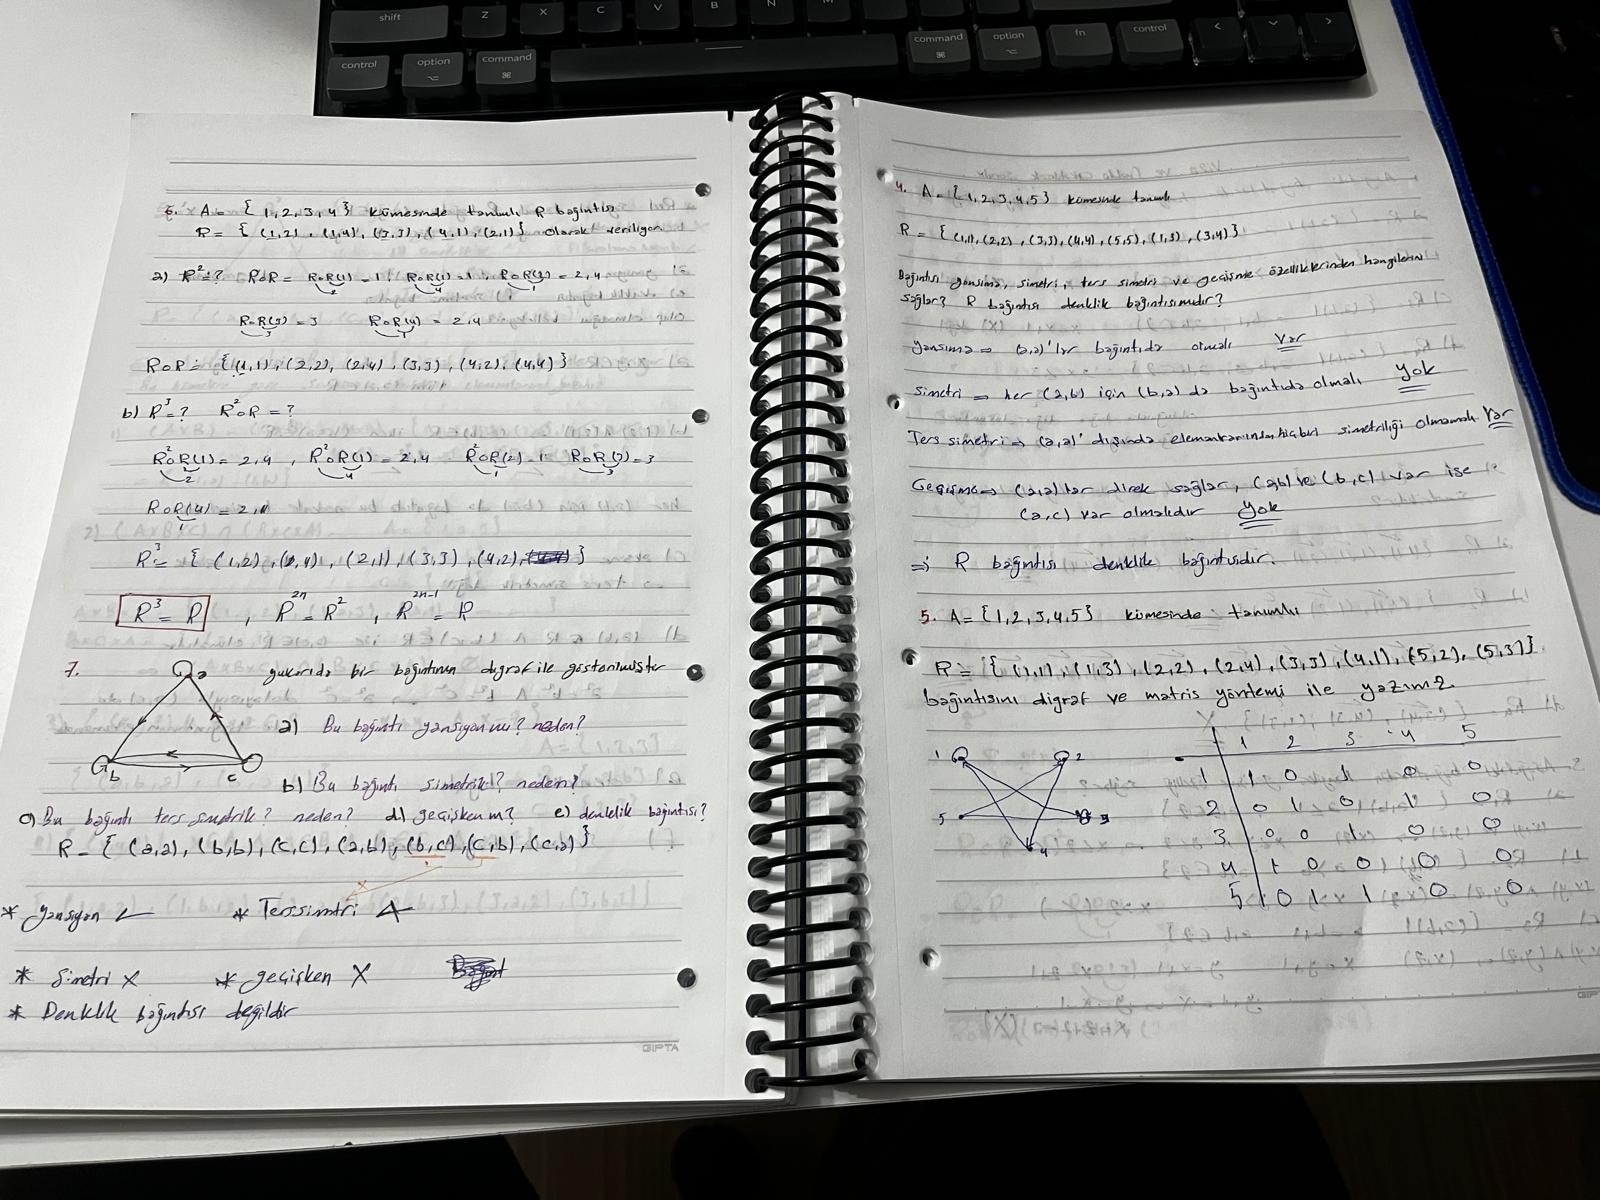 shift
Z
X
C
V
B
N
M
<
>
control
option
command
command
option
fn
control
6. A = { 1, 2, 3, 4 } kümesinde tanımlı R bağıntısı
R = { (1,2), (1,4), (3,3), (4,1), (2,1) } olarak veriliyor
a) R² = ? RoR = RoR(1) = 1, RoR(1) = 1, RoR(2) = 2,4
2 4 1
RoR(3) = 3 RoR(4) = 2,4
3 1
RoR = { (1,1), (2,2), (2,4), (3,3), (4,2), (4,4) }
b) R³ = ? R²oR = ?
R²oR(1) = 2,4, R²oR(1) = 2,4 R²oR(2) = 1 RoR(3) = 3
2 4 1 3
RoR(4) =
1
R³ = { (1,2), (1,4), (2,1), (3,3), (4,2), }
R³ = R, R²ⁿ = R², R²ⁿ⁻¹ = R
7. yukarıda bir bağıntının digraf ile gösterilmiştir
a
b
c
a) Bu bağıntı yansıyan mı? neden?
b) Bu bağıntı simetrik? neden?
c) Bu bağıntı ters simetrik? neden? d) geçişken m? e) denklik bağıntısı?
R = { (a,a), (b,b), (c,c), (a,b), (b,c), (c,b), (c,a) }
x
* yansıyan
* Terssimtri
* Simetri X * geçişken X
* Denklik bağıntısı değildir
GIPTA
4. A = { 1, 2, 3, 4, 5 } kümesinde tanımlı
R = { (1,1), (2,2), (3,3), (4,4), (5,5), (1,3), (3,4) }
Bağıntısı yansıma, simetri, ters simetri ve geçişme özelliklerinden hangilerini
sağlar? R bağıntısı denklik bağıntısımıdır?
yansıma ⇒ (a,a)'lar bağıntıda olmalı Var
Simetri ⇒ her (a,b) için (b,a) da bağıntıda olmalı Yok
Ters simetri ⇒ (a,a)' dışında elemanlarından hiçbiri simetriliği olmamalı Var
Geçişme ⇒ (a,a) lar direk sağlar, (a,b) ve (b,c) var ise
(a,c) var olmalıdır Yok
⇒ R bağıntısı denklik bağıntısıdır.
5. A = { 1, 2, 3, 4, 5 } kümesinde tanımlı
R = { (1,1), (1,3), (2,2), (2,4), (3,3), (4,1), (5,2), (5,3) }
bağıntısını digraf ve matris yöntemi ile yazınız
1
2
5
3
4
1 2 3 4 5
1 1 0 1 0 0
2 0 1 0 1 0
3 0 0 1 0 0
4 1 0 0 0 0
5 0 1 1 0 0